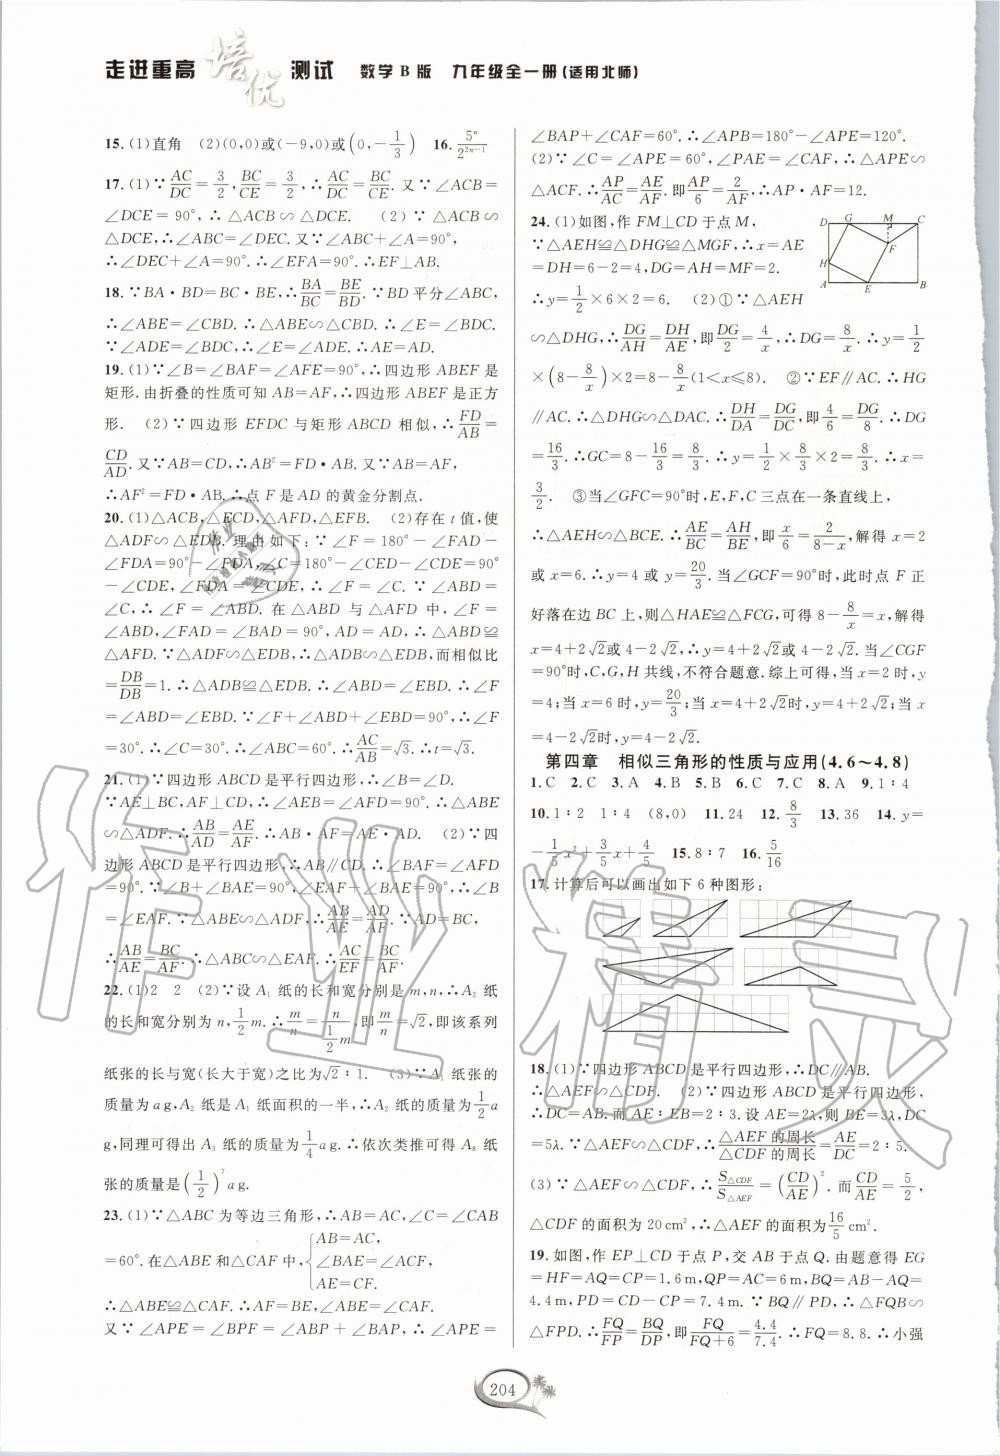 走进重高 培优 测试 数学B版 九年级全一册(适用北师)
15.(1)直角 (2)(0,0)或(-9,0)或(0,-1/3) 16. 5ⁿ/2²ⁿ⁻¹
17.(1)∵AC/DC=3/2,BC/CE=3/2,∴AC/DC=BC/CE.又∵∠ACB=
∠DCE=90°,∴△ACB∽△DCE. (2)∵△ACB∽
△DCE,∴∠ABC=∠DEC.又∵∠ABC+∠A=90°,
∴∠DEC+∠A=90°.∴∠EFA=90°.∴EF⊥AB.
18.∵BA·BD=BC·BE,∴BA/BC=BE/BD.∵BD平分∠ABC,
∴∠ABE=∠CBD.∴△ABE∽△CBD.∴∠E=∠BDC.
∵∠ADE=∠BDC,∴∠E=∠ADE.∴AE=AD.
19.(1)∵∠B=∠BAF=∠AFE=90°,∴四边形ABEF是
矩形.由折叠的性质可知AB=AF,∴四边形ABEF是正方
形. (2)∵四边形EFDC与矩形ABCD相似,∴FD/AB=
CD/AD.又∵AB=CD,∴AB²=FD·AD.又∵AB=AF,
∴AF²=FD·AB.∴点F是AD的黄金分割点.
20.(1)△ACB,△ECD,△AFD,△EFB. (2)存在t值,使
△ADF∽△EDB.理由如下:∵∠F=180°-∠FAD-
∠FDA=90°-∠FDA,∠C=180°-∠CED-∠CDE=90°
-∠CDE,∠FDA=∠CDE,∴∠F=∠C.∵∠ABD=
∠C,∴∠F=∠ABD.在△ABD与△AFD中,∠F=
∠ABD,∠FAD=∠BAD=90°,AD=AD,∴△ABD≌
△AFD.∵△ADF∽△EDB,∴△ADB∽△EDB,而相似比
=DB/DB=1.∴△ADB≌△EDB.∴∠ABD=∠EBD.∴∠F
=∠ABD=∠EBD.∵∠F+∠ABD+∠EBD=90°,∴∠F
=30°.∴∠C=30°.∴∠ABC=60°.∴AC/AB=√3.∴t=√3.
21.(1)∵四边形ABCD是平行四边形,∴∠B=∠D.
∵AE⊥BC,AF⊥CD,∴∠AEB=∠AFD=90°.∴△ABE
∽△ADF.∴AB/AD=AE/AF.∴AB·AF=AE·AD. (2)∵四
边形ABCD是平行四边形,∴AB∥CD.∴∠BAF=∠AFD
=90°.∵∠B+∠BAE=90°,∠EAF+∠BAE=90°,∴∠B
=∠EAF.∵△ABE∽△ADF,∴AB/AE=AD/AF.∵AD=BC,
∴AB/AE=BC/AF.∴△ABC∽△EAF.∴AC/EF=BC/AF.
22.(1)2 2 (2)∵设A₁纸的长和宽分别是m,n,∴A₂纸
的长和宽分别为n,1/2 m.∴m/n=n/(1/2 m),即m/n=√2,即该系列
纸张的长与宽(长大于宽)之比为√2∶1. (3)∵A₁纸的
质量为a g,A₂纸是A₁纸面积的一半,∴A₂纸的质量为1/2 a
g,同理可得出A₃纸的质量为1/4 a g.∴依次类推可得A₈纸
张的质量是(1/2)⁷a g.
23.(1)∵△ABC为等边三角形,∴AB=AC,∠C=∠CAB
=60°.在△ABE和△CAF中,{AB=AC,
∠BAE=∠ACF,
AE=CF.
∴△ABE≌△CAF.∴AF=BE,∠ABE=∠CAF.
又∵∠APE=∠BPF=∠ABP+∠BAP,∴∠APE=
∠BAP+∠CAF=60°.∴∠APB=180°-∠APE=120°.
(2)∵∠C=∠APE=60°,∠PAE=∠CAF,∴△APE∽
△ACF.∴AP/AC=AE/AF.即AP/6=2/AF,∴AP·AF=12.
24.(1)如图,作FM⊥CD于点M,
∵△AEH≌△DHG≌△MGF,∴x=AE
=DH=6-2=4,DG=AH=MF=2.
∴y=1/2×6×2=6. (2)①∵△AEH
D G M C
H F
A E B
∽△DHG,∴DG/AH=DH/AE,即DG/2=4/x,∴DG=8/x.∴y=1/2
×(8-8/x)×2=8-8/x(1<x≤8). ②∵EF∥AC.∴HG
∥AC.∴△DHG∽△DAC.∴DH/DA=DG/DC,即4/6=DG/8.∴DG
=16/3.∴GC=8-16/3=8/3.∴y=1/2×8/3×2=8/3.∴x=
3/2. ③当∠GFC=90°时,E,F,C三点在一条直线上,
∴△AEH∽△BCE.∴AE/BC=AH/BE,即x/6=2/(8-x),解得x=2
或x=6.∴y=4或y=20/3.当∠GCF=90°时,此时点F正
好落在边BC上,则△HAE≌△FCG,可得8-8/x=x,解得
x=4+2√2或4-2√2.∴y=4+2√2或4-2√2.当∠CGF
=90°时,C,G,H共线,不符合题意.综上可得,当x=2时,y
=4;当x=6时,y=20/3;当x=4+2√2时,y=4+2√2;当x
=4-2√2时,y=4-2√2.
第四章 相似三角形的性质与应用(4.6~4.8)
1.C 2.C 3.A 4.B 5.B 6.C 7.C 8.A 9.1∶4
10.1∶2 1∶4 (8,0) 11.24 12.8/3 13.36 14.y=
-1/5 x²+3/5 x+4/5 15.8∶7 16.5/16
17.计算后可以画出如下6种图形:
18.(1)∵四边形ABCD是平行四边形,∴DC∥AB.
∴△AEF∽△CDF. (2)∵四边形ABCD是平行四边形,
∴DC=AB.而AE∶EB=2∶3.设AE=2λ,则BE=3λ,DC
=5λ.∵△AEF∽△CDF,∴△AEF的周长/△CDF的周长=AE/DC=2∶5.
(3)∵△AEF∽△CDF,∴S△CDF/S△AEF=(CD/AE)².而CD/AE=5/2,
△CDF的面积为20 cm²,∴△AEF的面积为16/5 cm².
19.如图,作EP⊥CD于点P,交AB于点Q.由题意得EG
=HF=AQ=CP=1.6m,QP=AC=4m,BQ=AB-AQ=
4.4m,PD=CD-CP=7.4m.∵BQ∥PD,∴△FQB∽
△FPD.∴FQ/FP=BQ/DP,即FQ/(FQ+6)=4.4/7.4.∴FQ=8.8.∴小强
204
作业精灵